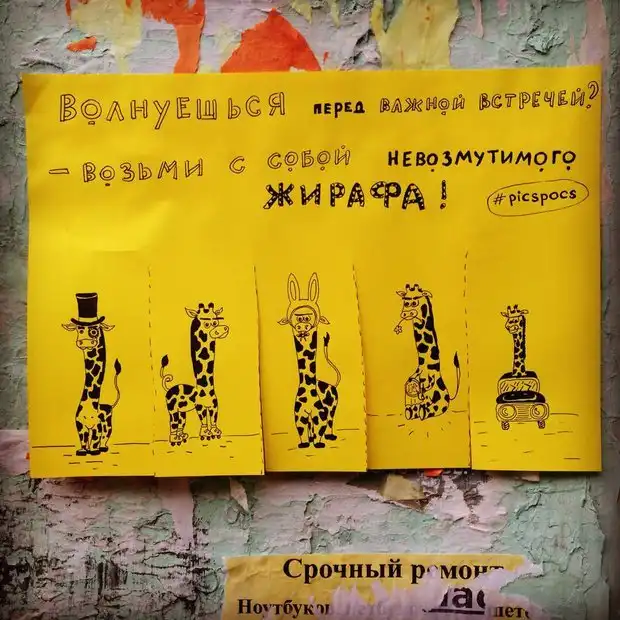 Волнуешься перед важной встречей?
– возьми с собой невозмутимого
жирафа!
#picspocs
Срочный ремонт